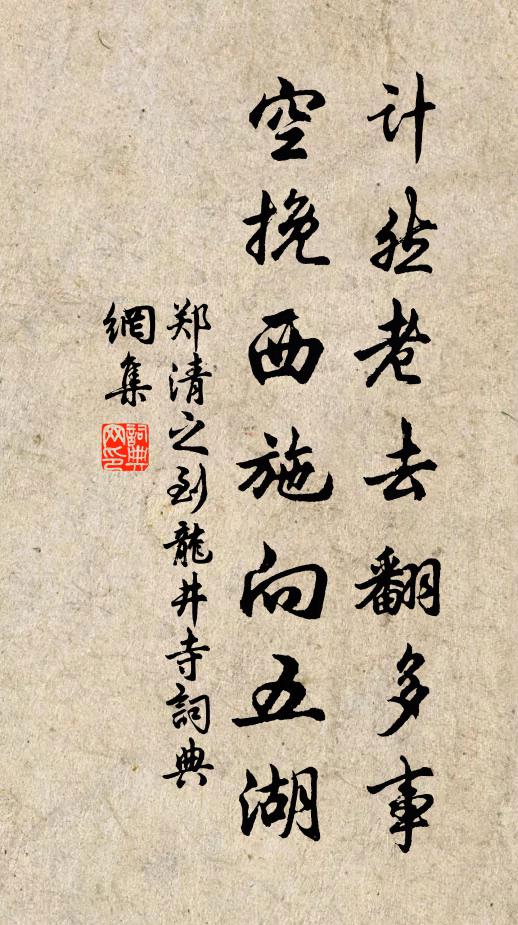 计然老去翻多事
空挽西施向五湖
郑清之到龍井寺詞典
網集
詞典
网印